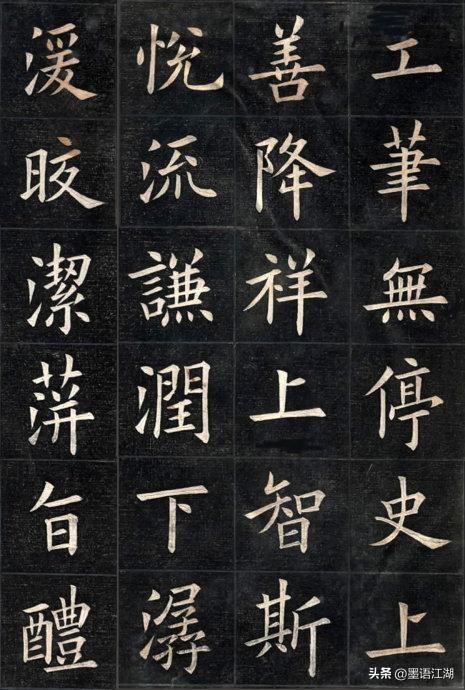 工筆無停史上
善降祥上智斯
悅流謙潤下潺
湲晈潔蓱旨醴
头条 @墨语江湖